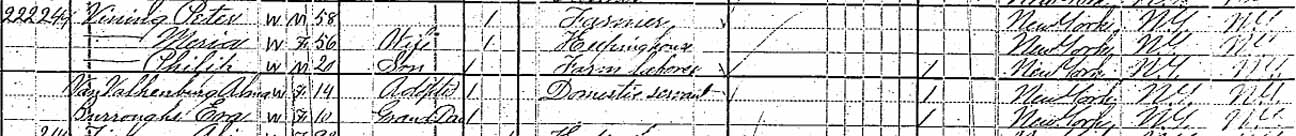 222 249 Vining Peter W M 58 1 Farmer New York N.Y. N.Y.
—— Meria W F 56 Wife 1 Keeping house New York N.Y. N.Y.
—— Philip W M 20 Son 1 Farm laborer 1 New York N.Y. N.Y.
Van Valkenburg Alma W F 14 Adopted 1 Domestic servant 1 New York N.Y. N.Y.
Burroughs W F 10 Grand Dau 1 1 New York N.Y. N.Y.